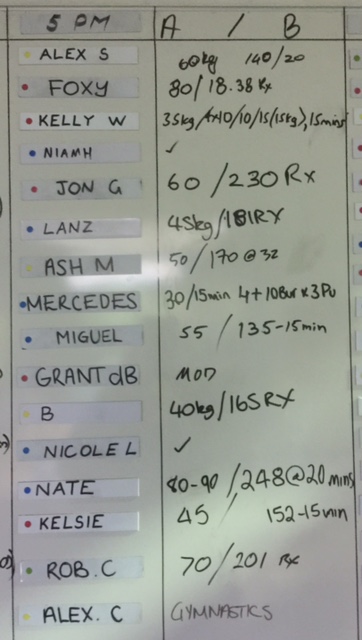 5 PM A / B
ALEX S 60kg 140/20
FOXY 80/18.38 Rx
KELLY W 35kg/4x10/10/15(15kg),15mins
NIAMH ✓
JON G 60/230 Rx
LANZ 45kg/181RX
ASH M 50/170@32
MERCEDES 30/15min 4+10Bur x3Pu
MIGUEL 55/135-15min
GRANT dB MOD
B 40kg/165RX
NICOLE L ✓
NATE 80-90/248@20 mins
KELSIE 45 152-15min
ROB.C 70/201 Rx
ALEX.C GYMNASTICS